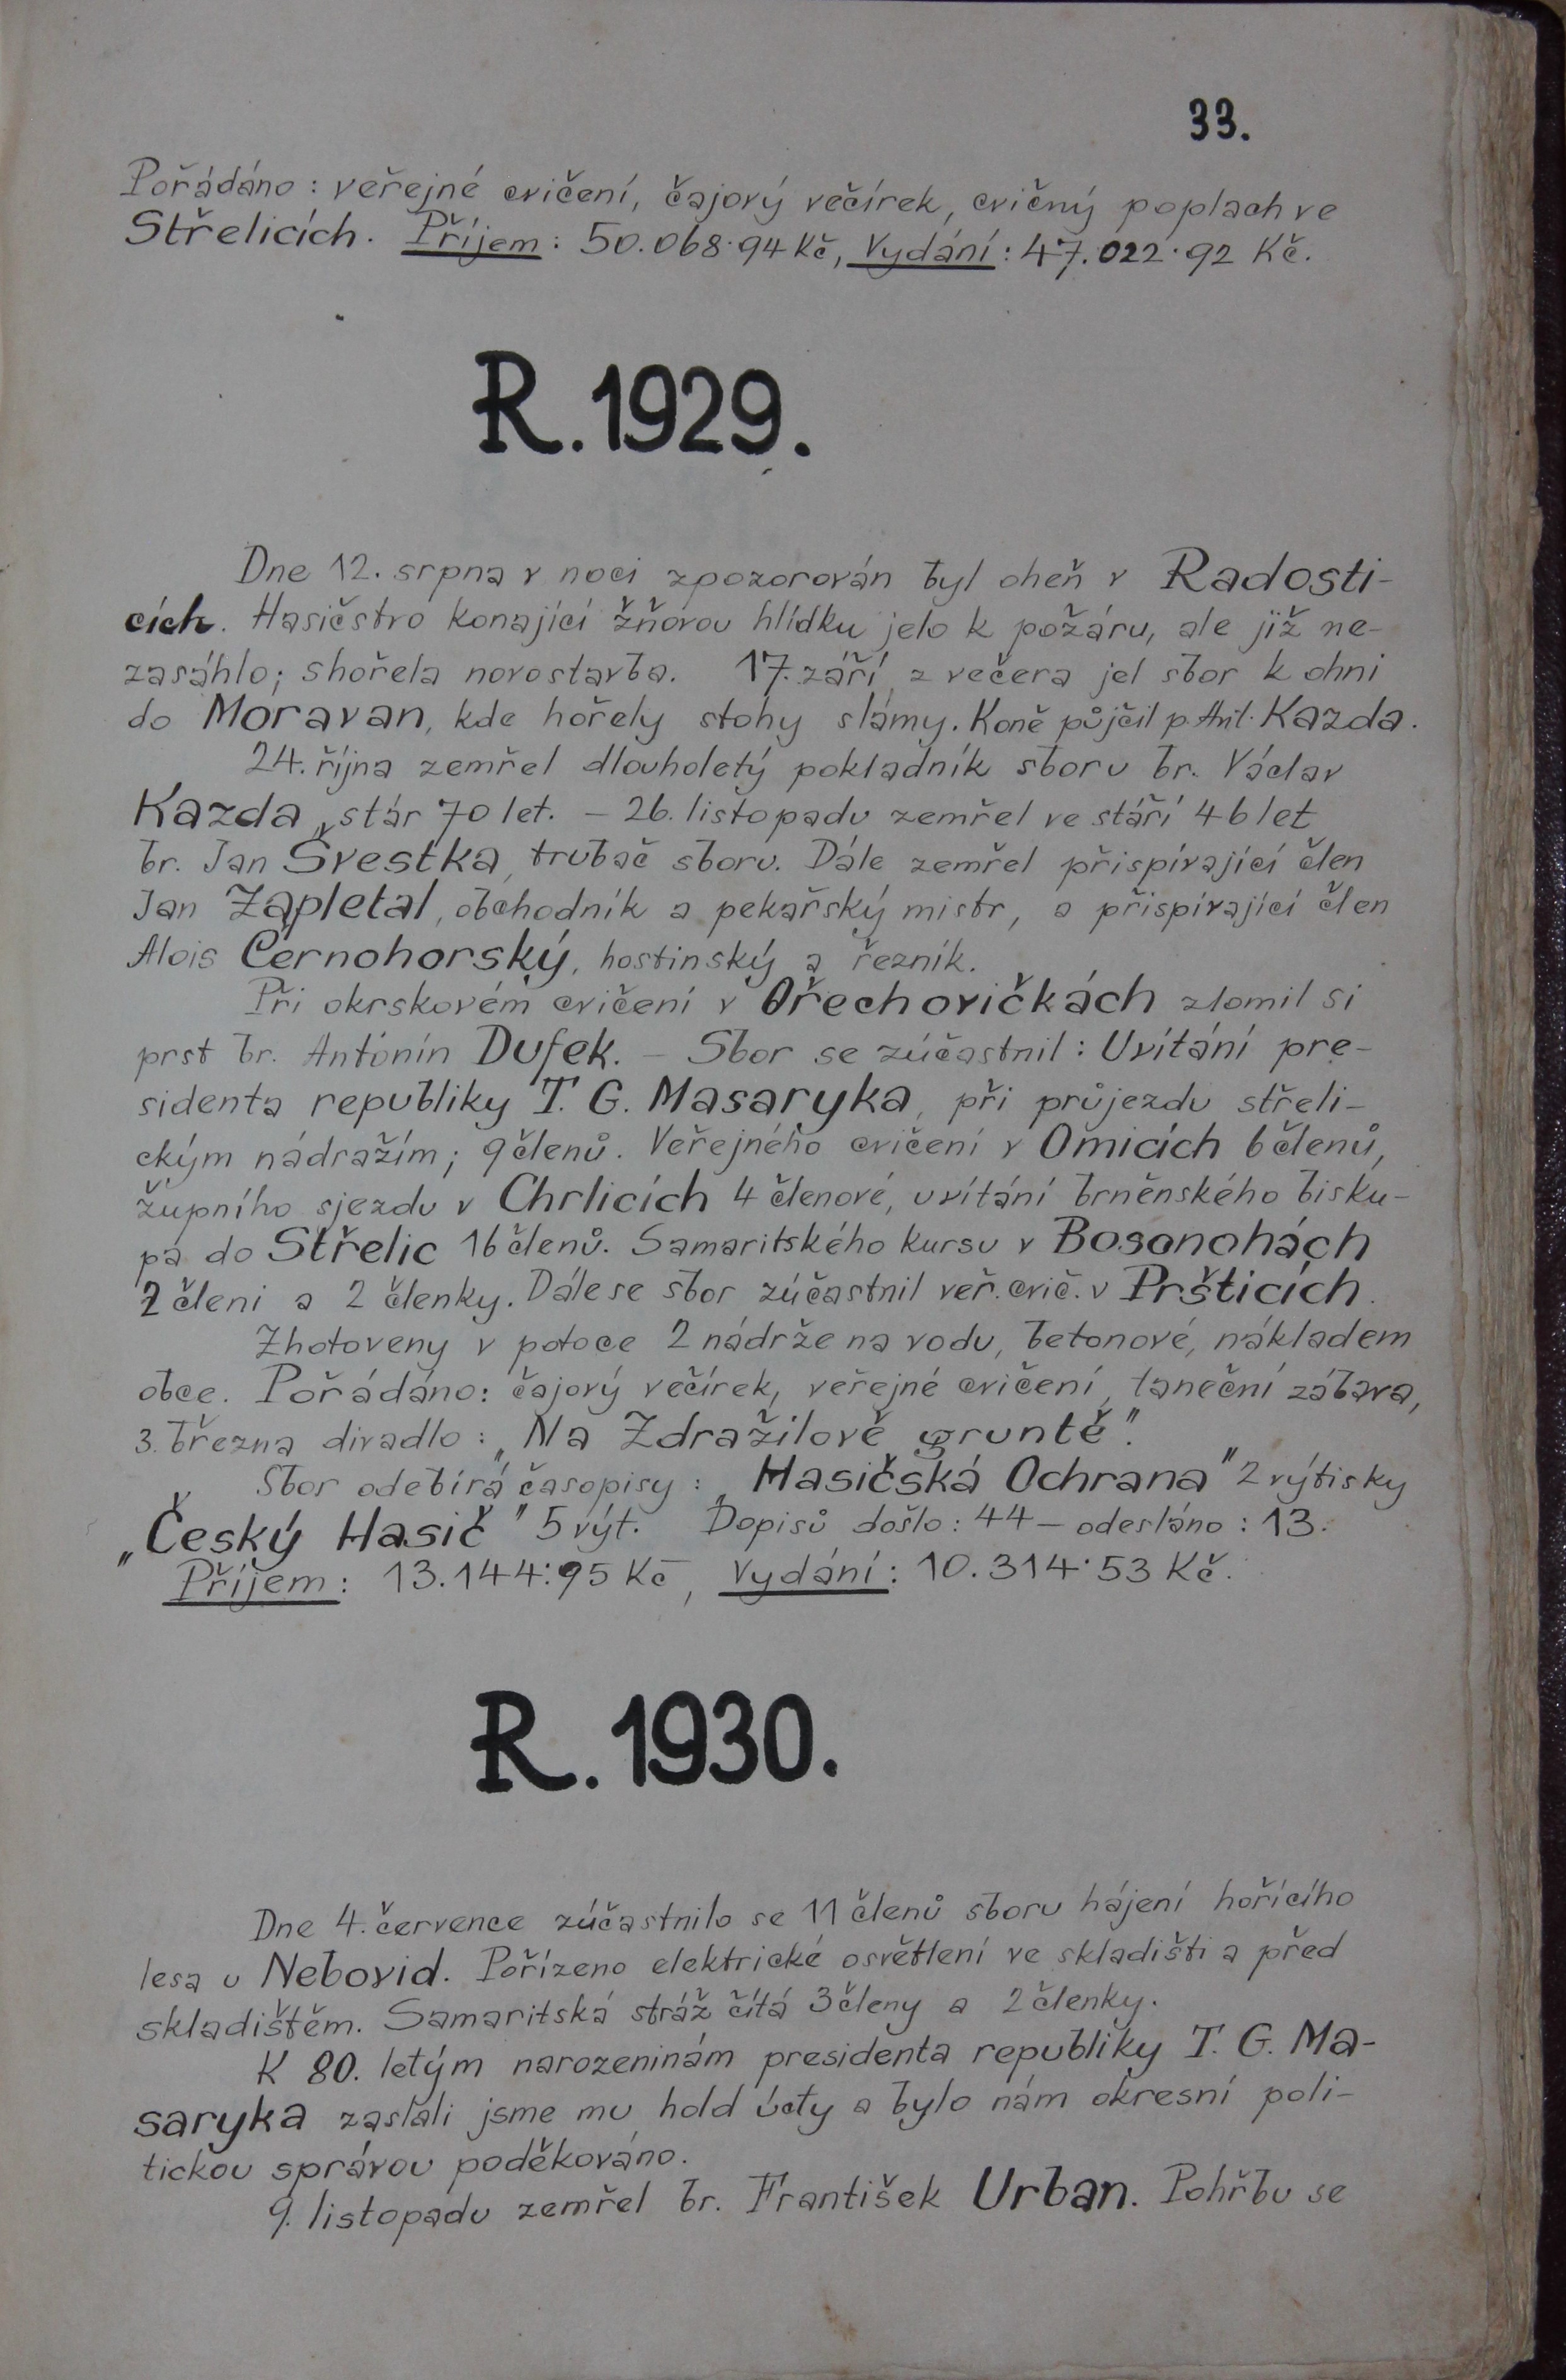 33.
Pořádáno: veřejné cvičení, čajový večírek, cvičný poplach ve
Střelicích. Příjem: 50.068·94 Kč, Vydání: 47.022·92 Kč.
R. 1929.
Dne 12. srpna v noci zpozorován byl oheň v Radosti-
cích. Hasičstvo konající žňovou hlídku jelo k požáru, ale již ne-
zasáhlo; shořela novostavba. 17. září z večera jel sbor k ohni
do Moravan, kde hořely stohy slámy. Koně půjčil p. Ant. Kazda.
24. října zemřel dlouholetý pokladník sboru br. Václav
Kazda, stár 70 let. – 26. listopadu zemřel ve stáří 46 let
br. Jan Švestka, trubač sboru. Dále zemřel přispívající člen
Jan Zapletal, obchodník a pekařský mistr, a přispívající člen
Alois Černohorský, hostinský a řezník.
Při okrskovém cvičení v Ořechovičkách zlomil si
prst br. Antonín Dufek. – Sbor se zúčastnil: Uvítání pre-
sidenta republiky T. G. Masaryka, při průjezdu střeli-
ckým nádražím; 9 členů. Veřejného cvičení v Omicích 6 členů,
župního sjezdu v Chrlicích 4 členové, uvítání brněnského bisku-
pa do Střelic 16 členů. Samaritského kursu v Bosonohách
2 členi a 2 členky. Dále se sbor zúčastnil veř. cvič. v Pršticích.
Zhotoveny v potoce 2 nádrže na vodu, betonové, nákladem
obce. Pořádáno: čajový večírek, veřejné cvičení, taneční zábava,
3. března divadlo: „Na Zdražilově gruntě".
Sbor odebírá časopisy: „Hasičská Ochrana" 2 výtisky
„Český Hasič" 5 výt. Dopisů došlo: 44 – odesláno: 13.
Příjem: 13.144·95 Kč, Vydání: 10.314·53 Kč.
R. 1930.
Dne 4. července zúčastnilo se 11 členů sboru hájení hořícího
lesa u Nebovid. Pořízeno elektrické osvětlení ve skladišti a před
skladištěm. Samaritská stráž čítá 3 členy a 2 členky.
K 80. letým narozeninám presidenta republiky T. G. Ma-
saryka zaslali jsme mu hold úcty a bylo nám okresní poli-
tickou správou poděkováno.
9. listopadu zemřel br. František Urban. Pohřbu se